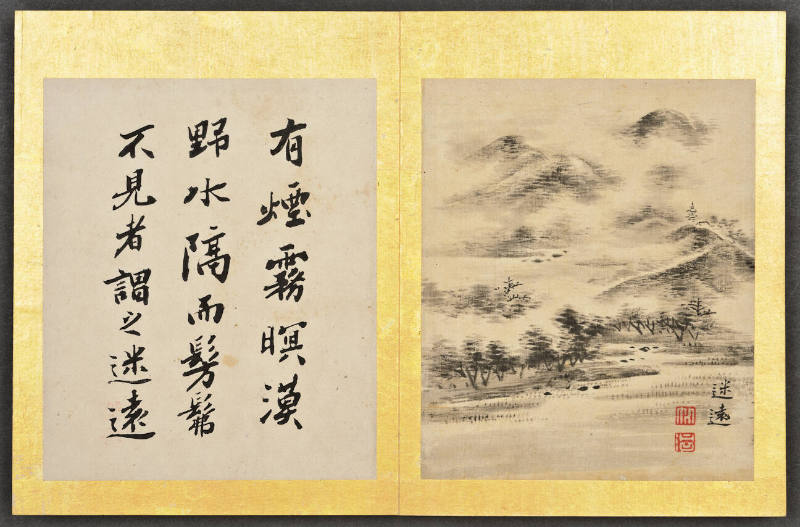 有煙霧暝漠
野水隔而髣髴
不見者謂之迷遠
迷遠